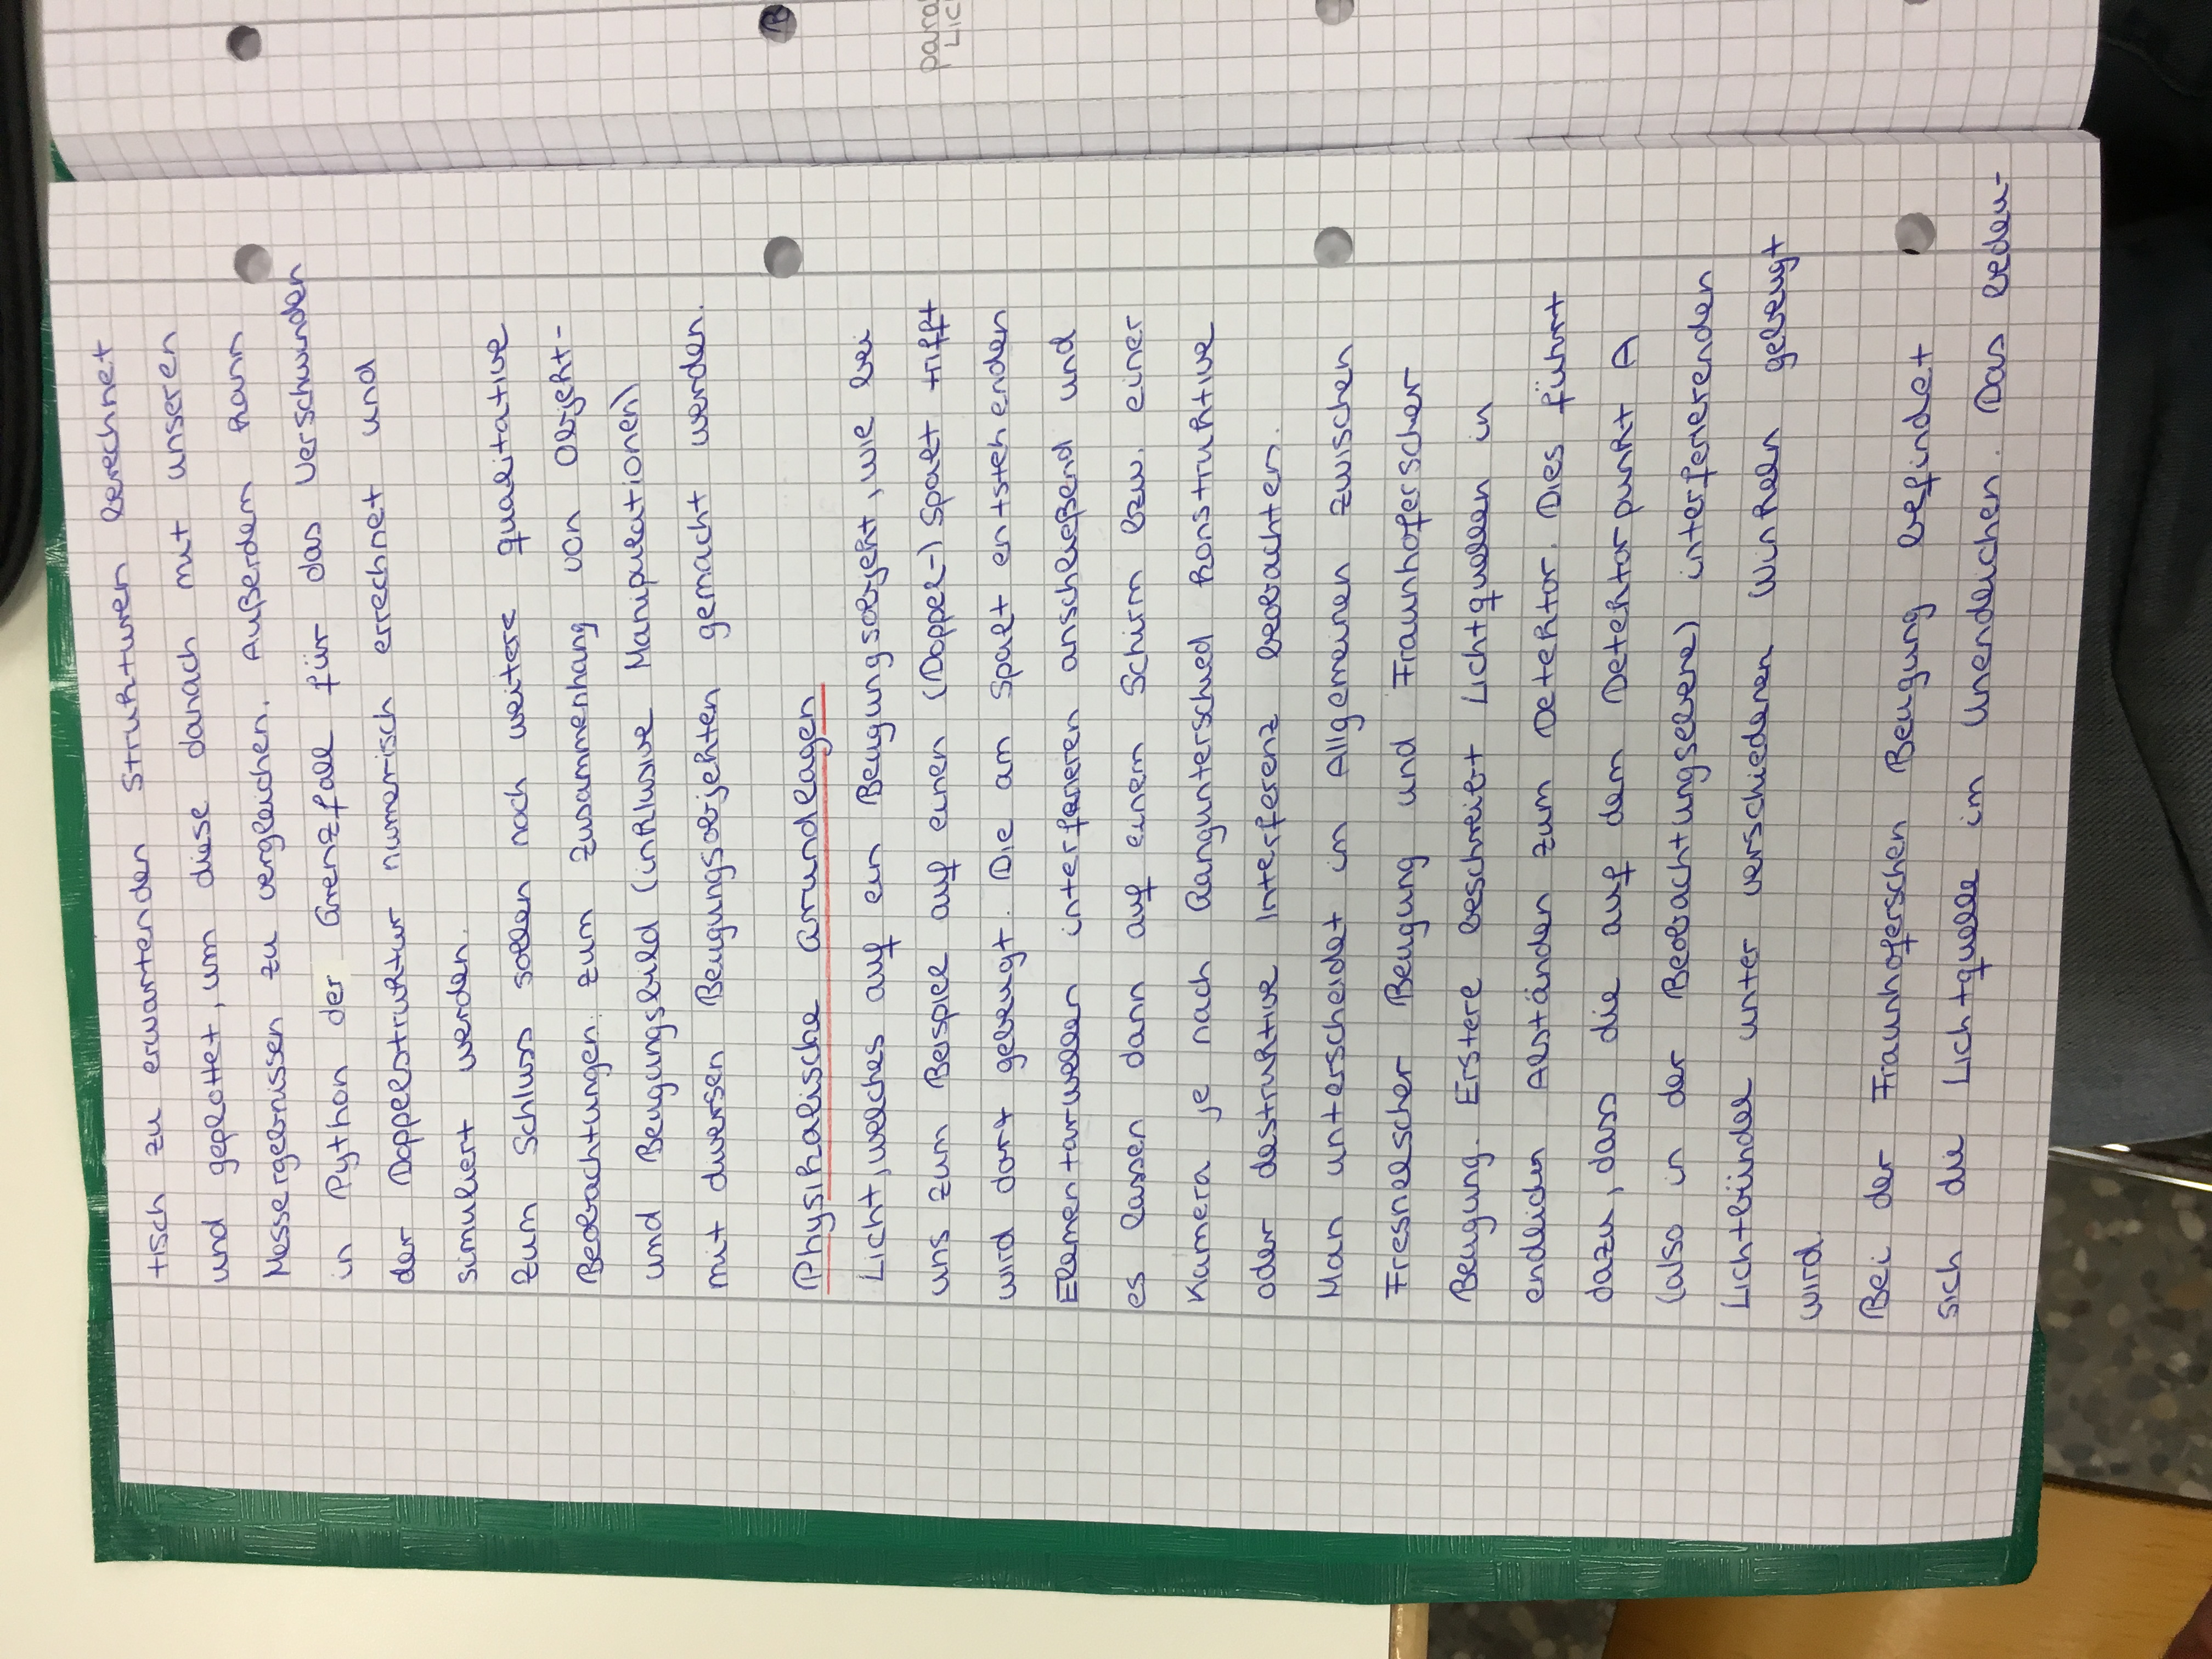 tisch zu erwartenden Strukturen berechnet
und geplottet, um diese danach mit unseren
Messergebnissen zu vergleichen. Außerdem kann
in Python der Grenzfall für das Verschwinden
der Doppelstruktur numerisch errechnet und
simuliert werden.
Zum Schluss sollen noch weitere qualitative
Beobachtungen zum Zusammenhang von Objekt-
und Beugungsbild (inklusive Manipulationen)
mit diversen Beugungsobjekten gemacht werden.
Physikalische Grundlagen
Licht, welches auf ein Beugungsobjekt, wie bei
uns zum Beispiel auf einen (Doppel-) Spalt trifft
wird dort gebeugt. Die am Spalt entstehenden
Elementarwellen interferieren anschließend und
es lassen dann auf einem Schirm bzw. einer
Kamera je nach Gangunterschied konstruktive
oder destruktive Interferenz beobachten.
Man unterscheidet im Allgemeinen zwischen
Fresnelscher Beugung und Fraunhoferscher
Beugung. Erstere beschreibt Lichtquellen in
endlichen Abständen zum Detektor. Dies führt
dazu, dass die auf dem Detektorpunkt A
(also in der Beobachtungsebene) interferierenden
Lichtbündel unter verschiedenen Winkeln gebeugt
wird.
Bei der Fraunhoferschen Beugung befindet
sich die Lichtquelle im Unendlichen. Das bedeu-
B
para
Lic